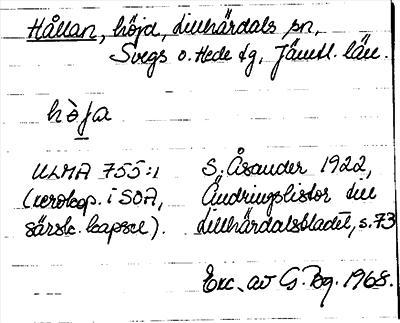 Hållan, höjd, Lillhärdals sn,
Svegs o. Hede tg, Jämtl. län.
hò̀ja
ULMA 755:1 S. Åsander 1922,
(xerokop. i SOA, Ändringslistor till
särsk. kapsel). Lillhärdalsbladet, s. 73
Exc. av G. Bg. 1968.